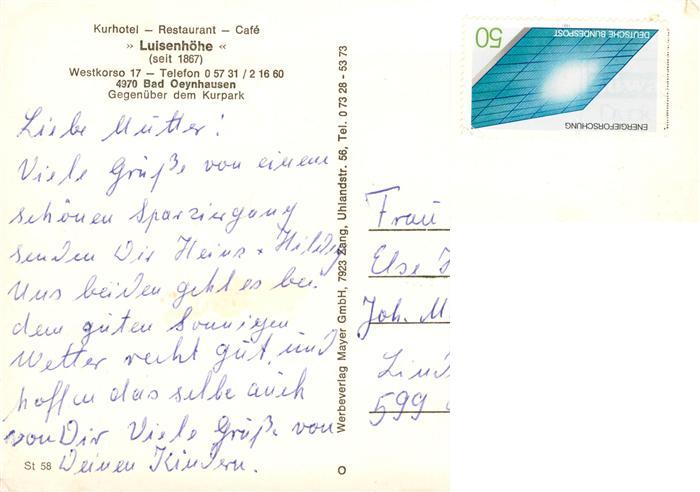 Kurhotel – Restaurant – Café
» Luisenhöhe «
(seit 1867)
Westkorso 17 – Telefon 0 57 31 / 2 16 60
4970 Bad Oeynhausen
Gegenüber dem Kurpark
Liebe Mutter!
Viele Grüße von einem
schönen Sparziergang
senden Dir Heinz + Hildeg
Uns beiden geht es bei
dem guten Sonnigen
Wetter recht gut und
hoffen das selbe auch
von Dir Viele Grüße von
Deinen Kindern.
St 58
Werbeverlag Mayer GmbH, 7923 Zang, Uhlandstr. 56, Tel. 0 73 28 - 53 73
50
DEUTSCHE BUNDESPOST
ENERGIEFORSCHUNG
Frau
Else
Joh. M
Lind
599